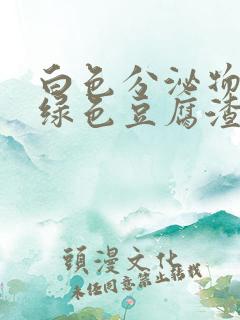 白色分泌物
绿色豆腐渣
頭漫文化
未经同意禁止转载